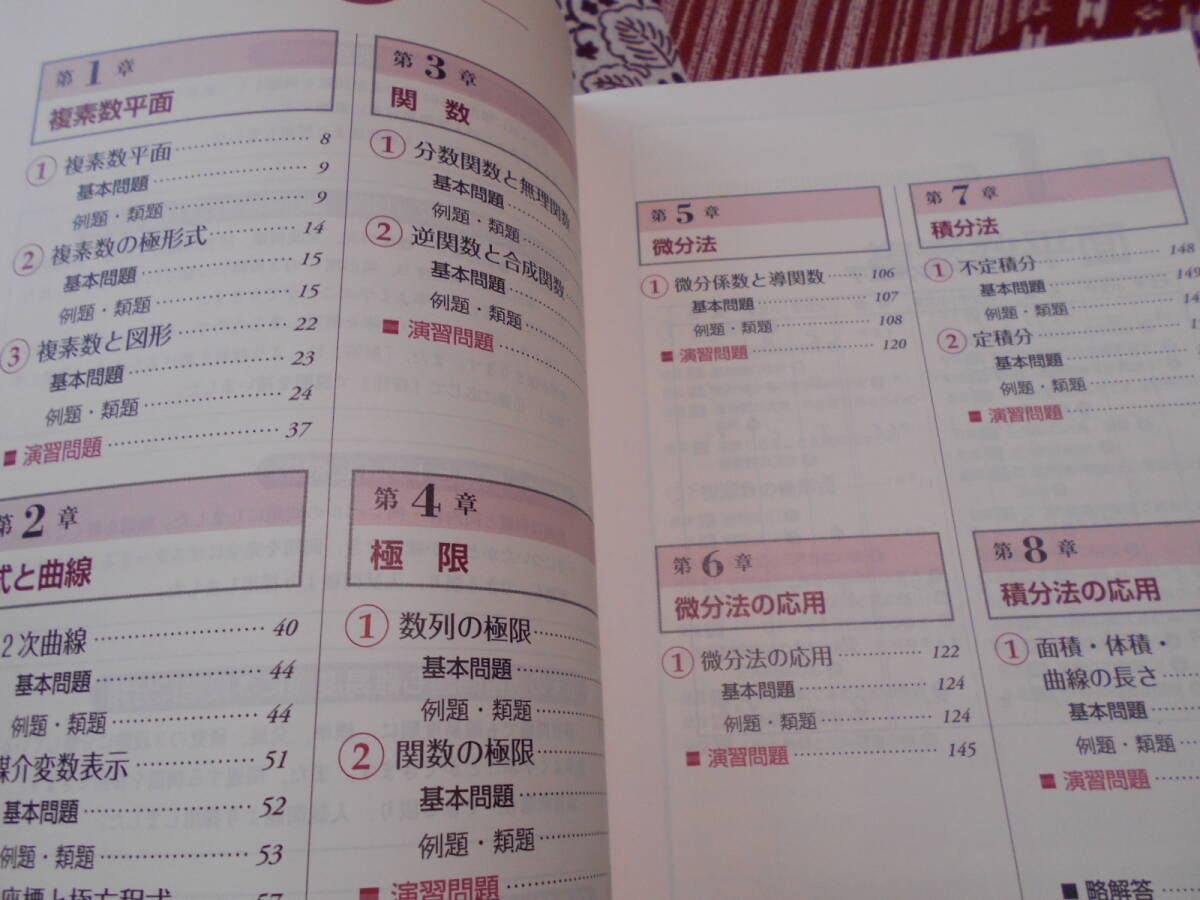 第1章
複素数平面
① 複素数平面 8
基本問題 9
例題・類題 9
② 複素数の極形式 14
基本問題 15
例題・類題 15
③ 複素数と図形 22
基本問題 23
例題・類題 24
■ 演習問題 37
第2章
式と曲線
2次曲線 40
基本問題 44
例題・類題 44
媒介変数表示 51
基本問題 52
例題・類題 53
座標と極方程式 57
第3章
関数
① 分数関数と無理関数
基本問題
例題・類題
② 逆関数と合成関数
基本問題
例題・類題
■ 演習問題
第4章
極限
① 数列の極限
基本問題
例題・類題
② 関数の極限
基本問題
例題・類題
■ 演習問題
第5章
微分法
① 微分係数と導関数 106
基本問題 107
例題・類題 108
■ 演習問題 120
第6章
微分法の応用
① 微分法の応用 122
基本問題 124
例題・類題 124
■ 演習問題 145
第7章
積分法
① 不定積分 148
基本問題 149
例題・類題
② 定積分
基本問題
例題・類題
■ 演習問題
第8章
積分法の応用
① 面積・体積・
曲線の長さ
基本問題
例題・類題
■ 演習問題
■ 略解答